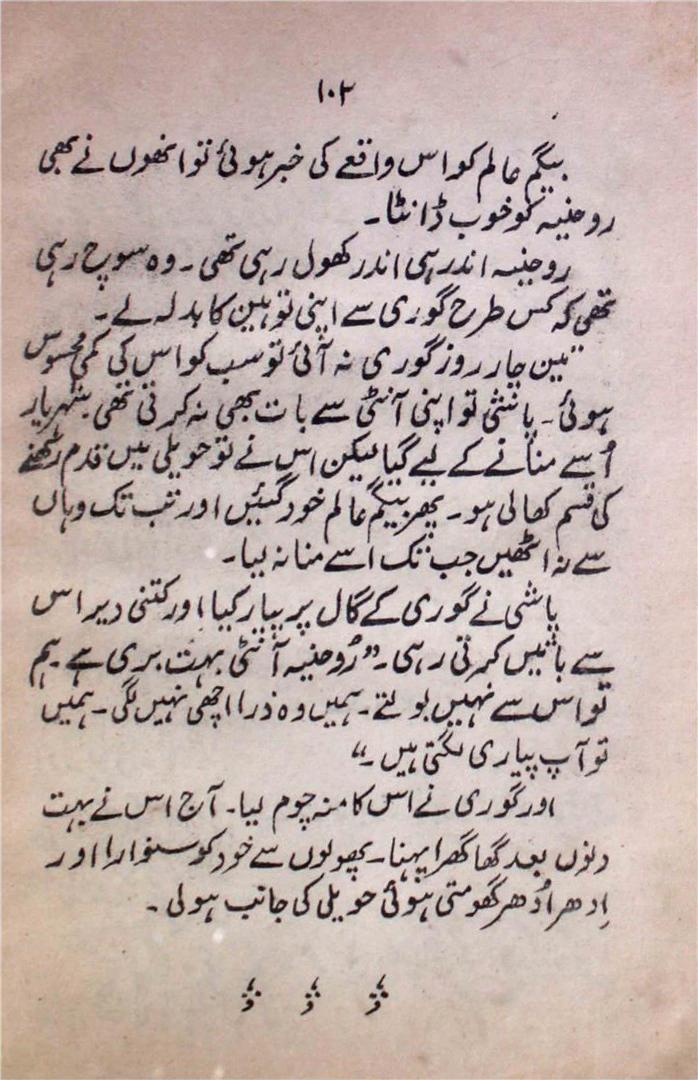 ۱۰۲
بیگم عالم کو اس واقعے کی خبر ہوئی تو انھوں نے بھی
روحنیہ کو خوب ڈانٹا۔
روحنیہ اندر ہی اندر کھول رہی تھی۔ وہ سوچ رہی
تھی کہ کس طرح گوری سے اپنی توہین کا بدلہ لے۔
تین چار روز گوری نہ آئی تو سب کو اس کی کمی محسوس
ہوئی۔ پاشی تو اپنی آنٹی سے بات بھی نہ کرتی تھی۔ شہریار
اُسے منانے کے لیے گیا لیکن اس نے تو حویلی میں قدم رکھنے
کی قسم کھالی ہو۔ پھر بیگم عالم خود گئیں اور تب تک وہاں
سے نہ اٹھیں جب تک اسے منا نہ لیا۔
پاشی نے گوری کے گال پر پیار کیا اور کتنی دیر اس
سے باتیں کرتی رہی۔ ”رُوحنیہ آنٹی بہت بری ہے۔ ہم
تو اس سے نہیں بولتے۔ ہمیں وہ ذرا اچھی نہیں لگی۔ ہمیں
تو آپ پیاری لگتی ہیں۔“
اور گوری نے اس کا منہ چوم لیا۔ آج اس نے بہت
دنوں بعد گھاگھرا پہنا۔ پھولوں سے خود کو سنوارا اور
اِدھر اُدھر گھومتی ہوئی حویلی کی جانب ہولی۔